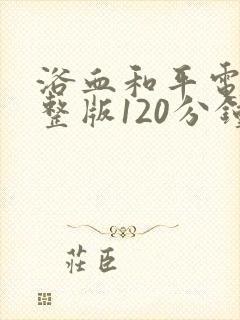 浴血和平電
整版120分鐘
莊臣